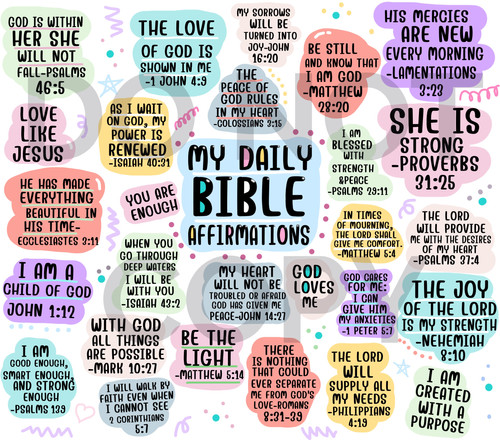 GOD IS WITHIN
HER SHE
WILL NOT
FALL-PSALMS
46:5
THE LOVE
OF GOD IS
SHOWN IN ME
-1 JOHN 4:9
MY SORROWS
WILL BE
TURNED INTO
JOY-JOHN
16:20
BE STILL
AND KNOW THAT
I AM GOD
-MATTHEW
28:20
HIS MERCIES
ARE NEW
EVERY MORNING
-LAMENTATIONS
3:23
LOVE
LIKE
JESUS
AS I WAIT
ON GOD, MY
POWER IS
RENEWED
-ISAIAH 40:31
THE
PEACE OF
GOD RULES
IN MY HEART
-COLOSSIANS 3:15
I AM
BLESSED
WITH
STRENGTH
&PEACE
-PSALMS 29:11
SHE IS
STRONG
-PROVERBS
31:25
MY DAILY
BIBLE
AFFIRMATIONS
HE HAS MADE
EVERYTHING
BEAUTIFUL IN
HIS TIME-
ECCLESIASTES 3:11
YOU ARE
ENOUGH
IN TIMES
OF MOURNING,
THE LORD SHALL
GIVE ME COMFORT.
-MATTHEW 5:4
THE LORD
WILL PROVIDE
ME WITH THE DESIRES
OF MY HEART
-PSALMS 37:4
I AM A
CHILD OF GOD
JOHN 1:12
WHEN YOU
GO THROUGH
DEEP WATERS
I WILL BE
WITH YOU
-ISAIAH 43:2
MY HEART
WILL NOT BE
TROUBLED OR AFRAID
GOD HAS GIVEN ME
PEACE-JOHN 14:27
GOD
LOVES
ME
GOD CARES
FOR ME:
I CAN
GIVE HIM
MY ANXIETIES
-1 PETER 5:7
THE JOY
OF THE LORD
IS MY STRENGTH
-NEHEMIAH
8:10
I AM
GOOD ENOUGH,
SMART ENOUGH,
AND STRONG
ENOUGH
-PSALMS 139
WITH GOD
ALL THINGS
ARE POSSIBLE
-MARK 10:27
BE THE
LIGHT
-MATTHEW 5:14
I WILL WALK BY
FAITH EVEN WHEN
I CANNOT SEE
2 CORINTHIANS
5:7
THERE
IS NOTHING
THAT COULD
EVER SEPARATE
ME FROM GOD'S
LOVE-ROMANS
8:31-39
THE LORD
WILL
SUPPLY ALL
MY NEEDS
-PHILIPPIANS
4:19
I AM
CREATED
WITH A
PURPOSE